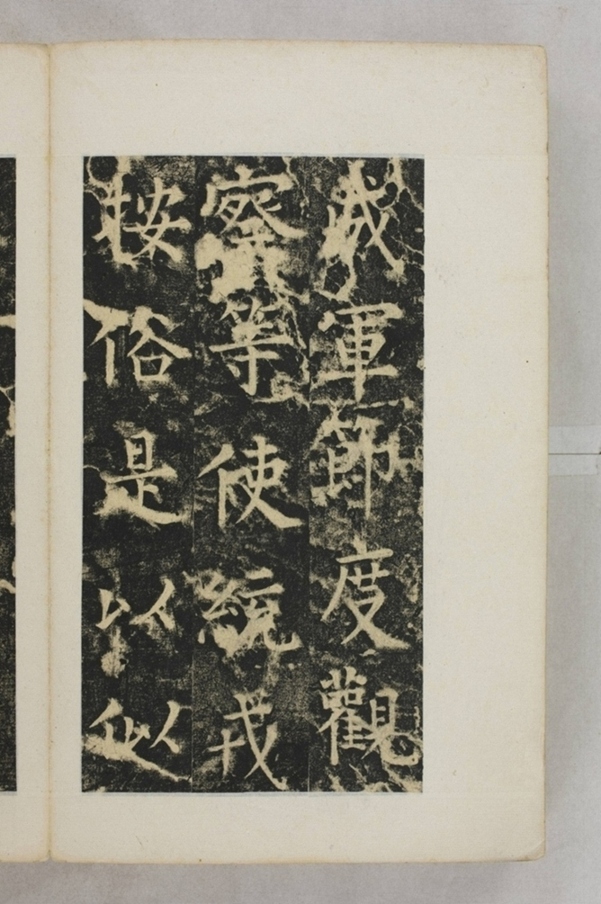 成軍節度觀
察等使統戎
按俗是以